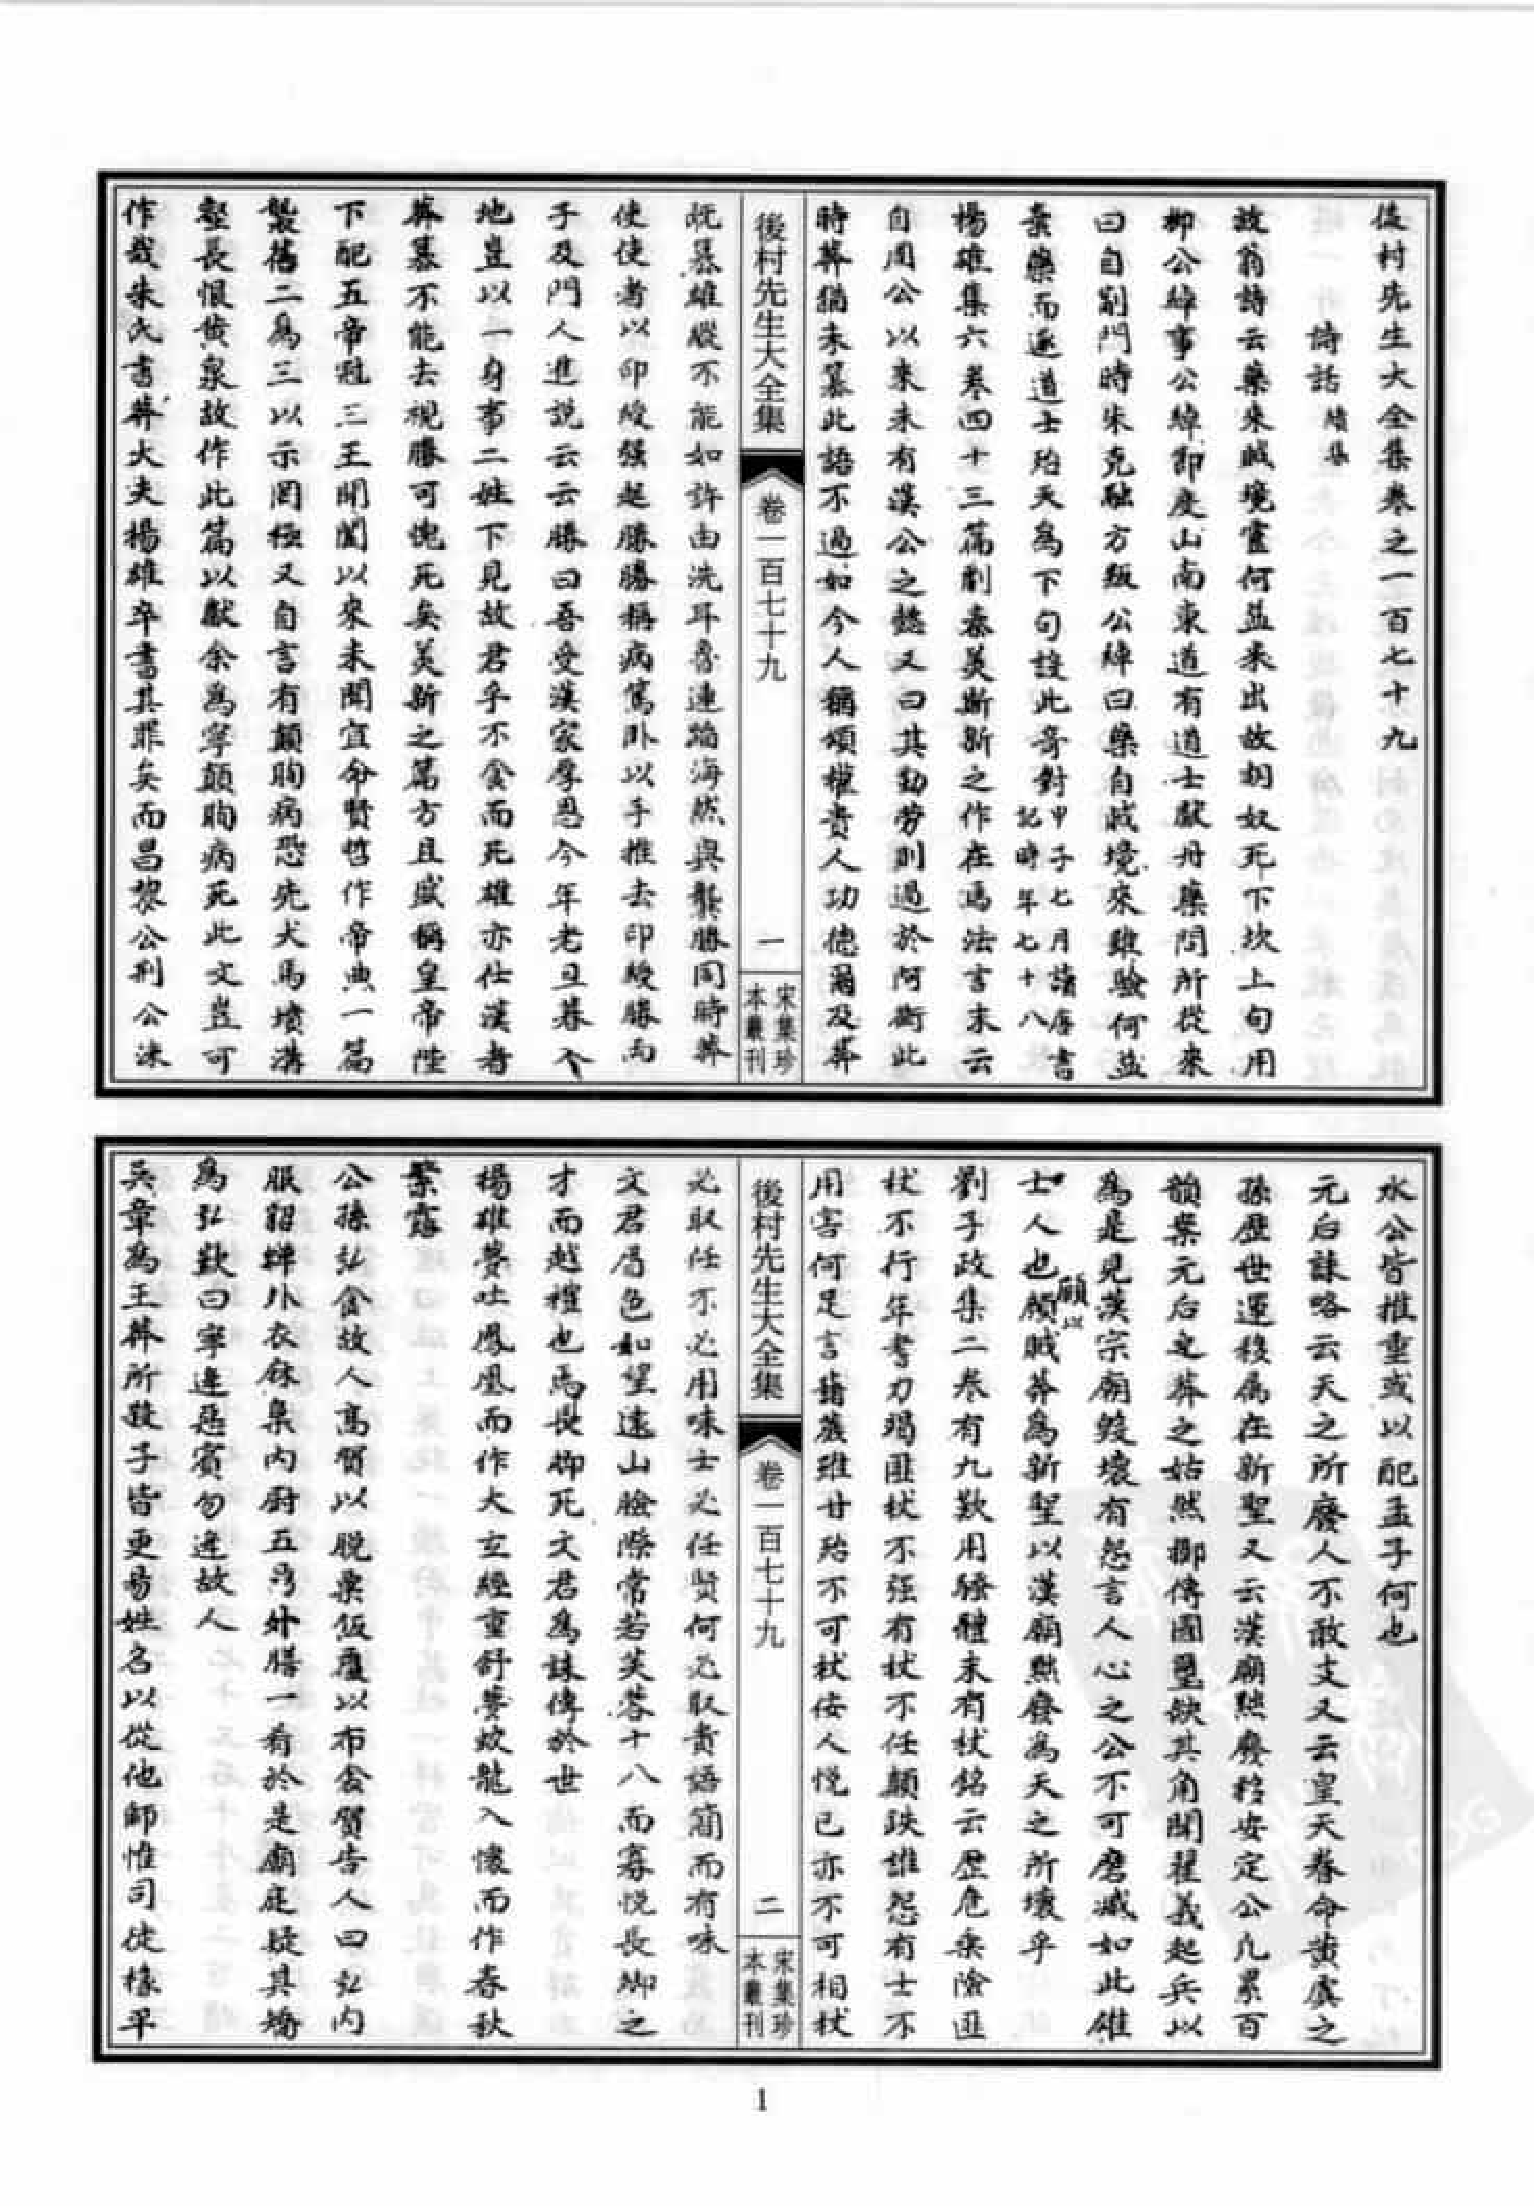 後村先生大全集卷之一百七十九
詩話 續集
放翁詩云藥來賊境靈何益米出胡奴死下炊上句用
柳公綽事公綽節度山南東道有道士獻丹藥問所從來
曰自薊門時朱克融方叛公綽曰藥自賊境來雖驗何益
棄藥而逐道士殆天為下句設此奇對甲子七月讀唐書
記時年七十八
楊雄集六卷四十三篇劇秦美新之作在焉法言末云
自周公以來未有漢公之懿又曰其勤勞則過於阿衡此
時莽猶未篡此語不過如今人稱頌權貴人功德爾及莽
後村先生大全集 卷一百七十九 一 宋集珍本叢刊
既篡雄縱不能如許由洗耳魯連蹈海然與龔勝同時莽
使使者以印綬強起勝勝稱病篤卧以手推去印綬勝兩
子及門人進說云云勝曰吾受漢家厚恩今年老旦暮入
地豈以一身事二姓下見故君乎不食而死雄亦仕漢者
莽篡不能去視勝可愧死矣美新之篇方且盛稱皇帝陛
下配五帝冠三王開闢以來未聞宜命賢哲作帝典一篇
襲舊二為三以示罔極又自言有顛眴病恐先犬馬填溝
壑長恨黃泉故作此篇以獻余為寧顛眴病死此文豈可
作哉朱氏書莽大夫楊雄卒書其罪矣而昌黎公荆公涑
水公皆推重或以配孟子何也
元后誄略云天之所廢人不敢支又云皇天眷命黃虞之
孫歷世運移屬在新聖又云漢廟黜廢移安定公凡累百
韻案元后乃莽之姑然擲傳國璽缺其角聞翟義起兵以
為是見漢宗廟毀壞有怨言人心之公不可磨滅如此雄
士人也顧賊莽為新聖以漢廟黜廢為天之所壞乎
顧以
劉子政集二卷有九歎用騷體末有杖銘云歷危乘險匪
杖不行年耆力竭匪杖不强有杖不任顛跌誰怨有士不
用害何足言藷蔗雖甘殆不可杖佞人悅已亦不可相杖
後村先生大全集 卷一百七十九 二 宋集珍本叢刊
必取任不必用味士必任賢何必取貴語簡而有味
文君眉色如望遠山臉際常若芙蓉十八而寡悅長卿之
才而越禮也焉長卿死文君為誄傳於世
楊雄夢吐鳳凰而作大玄經董舒夢蛟龍入懷而作春秋
繁露
公孫弘食故人高賀以脫粟飯覆以布衾賀告人曰弘内
服貂蟬外衣麻枲内厨五鼎外膳一肴於是廟庭疑其矯
為弘歎曰寧逢惡賓勿逢故人
吳章為王莽所殺子皆更易姓名以從他師惟司徒掾平
1